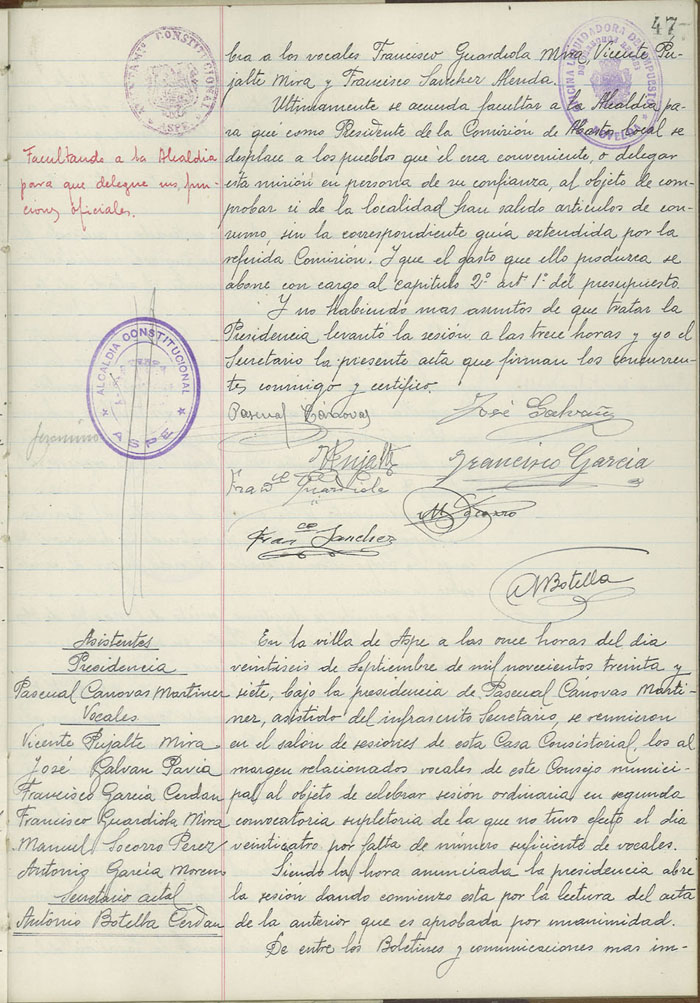 47
AYUNTAMTO CONSTITUCIONAL
ASPE
OFICINA LIQUIDADORA DEL IMPUESTO
NOVELDA
bra a los vocales Francisco Guardiola Mira, Vicente Pu-
jalte Mira y Francisco Sanchez Alenda.
Ultimamente se acuerda facultar a la Alcaldia pa-
ra que como Presidente de la Comisión de Abasto local se
desplace a los pueblos que él crea conveniente, o delegar
esta misión en persona de su confianza, al objeto de com-
probar si de la localidad han salido articulos de con-
sumo, sin la correspondiente guia extendida por la
referida Comisión. Y que el gasto que ello produzca se
abone con cargo al capitulo 2º art 1º del presupuesto.
Y no habiendo mas asuntos de que tratar la
Presidencia levantó la sesión a las trece horas y yo el
Secretario la presente acta que firman los concurren-
tes conmigo y certifico.
Facultando a la Alcaldia
para que delegue sus fun-
ciones oficiales.
ALCALDIA CONSTITUCIONAL
ASPE
Pascual Cánovas
José Galvañ
VPujalte
Francisco García
Franco Guardiola
M Socorro
Franco Sanchez
ABotella
Asistentes
Presidencia
Pascual Canovas Martinez
Vocales
Vicente Pujalte Mira
José Galvan Pavia
Francisco García Cerdan
Francisco Guardiola Mira
Manuel Socorro Perez
Antonio García Moreno
Secretario actal
Antonio Botella Cerdan
En la villa de Aspe a las once horas del dia
veintiseis de Septiembre de mil novecientos treinta y
siete, bajo la presidencia de Pascual Cánovas Marti-
nez, asistido del infrascrito Secretario, se reunieron
en el salón de sesiones de esta Casa Consistorial, los al
margen relacionados vocales de este Consejo munici-
pal, al objeto de celebrar sesión ordinaria en segunda
convocatoria supletoria de la que no tuvo efecto el dia
veinticuatro por falta de número suficiente de vocales.
Siendo la hora anunciada la presidencia abre
la sesión dando comienzo esta por la lectura del acta
de la anterior que es aprobada por unanimidad.
De entre los Boletines y comunicaciones mas im-